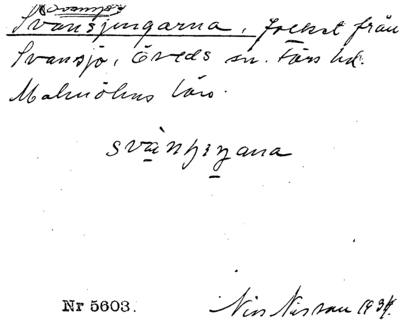 Svansjungarna, folket från
Svansjö, Öveds sn. Färs hd.
Malmöhus län.
Nr 5603.
Nils Nilsson 1934.